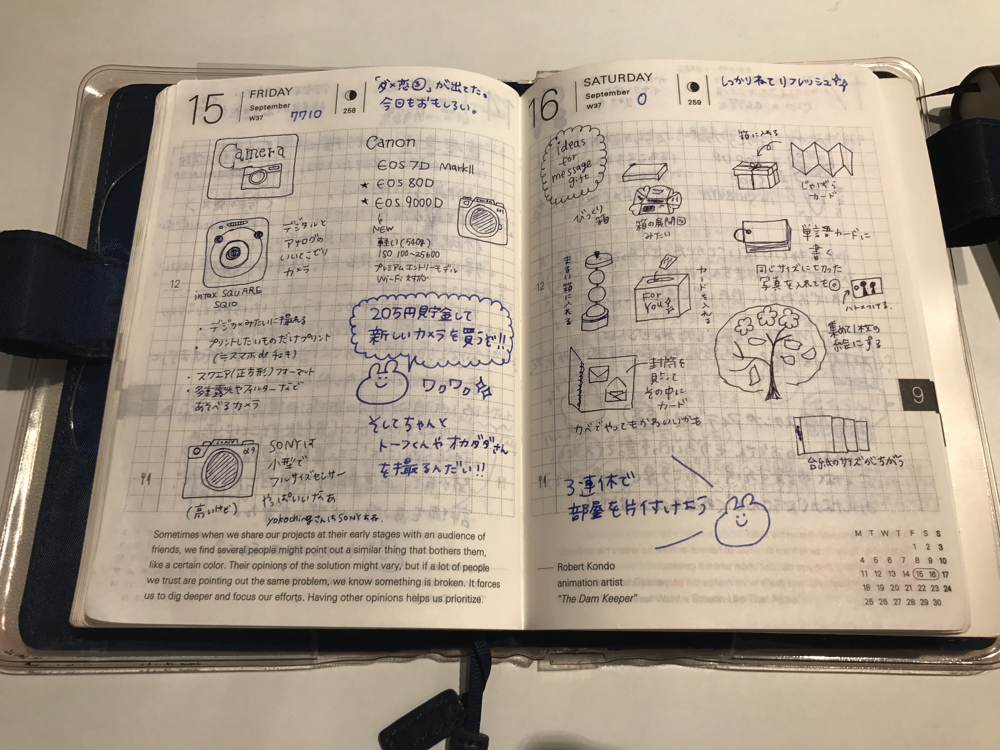 15
FRIDAY
September
W37
7710
258
「ダメ恋②」が出てた。
今回もおもしろい。
Camera
デジタルと
アナログの
いいとこどり
カメラ
instax SQUARE
SQ10
・デジカメみたいに撮れる
・プリントしたいものだけプリント
(≒スマホ de チェキ)
・スクウェア(正方形)フォーマット
・多重露光やフィルターなどで
あそべるカメラ
SONY
α9
SONYは
小型で
フルサイズセンサー
やっぱいいなぁ
(高いけど)
yokochiさんはSONYである。
Canon
EOS 7D MarkII
★ EOS 80D
★ EOS 9000D
NEW
軽い(540g)
ISO 100~25600
プレミアムエントリーモデル
Wi-Fi対応
20万円貯金して
新しいカメラを買うぞ!!
ワクワク
そしてちゃんと
トーフくんやオカダダさん
を撮るんだい!!
12
Sometimes when we share our projects at their early stages with an audience of
friends, we find several people might point out a similar thing that bothers them,
like a certain color. Their opinions of the solution might vary, but if a lot of people
we trust are pointing out the same problem, we know something is broken. It forces
us to dig deeper and focus our efforts. Having other opinions helps us prioritize.
16
SATURDAY
September
W37
0
259
しっかりねてリフレッシュ
Ideas
for
message
gift
びっくり
箱
箱の展開図
みたい
箱に入れる
じゃばら
カード
単語カードに
書く
同じサイズに切った
写真を入れても◎
ハトメつける
12
まるい箱に入れる
For
You
カードを入れる
集めて1枚の
絵にする
封筒を
貼って
その中に
カード
カベでやってもかわいいかも
台紙のサイズがちがう
9
3連休で
部屋を片付けよう
Robert Kondo
animation artist
"The Dam Keeper"
M T W T F S S
1 2 3
4 5 6 7 8 9 10
11 12 13 14 15 16 17
18 19 20 21 22 23 24
25 26 27 28 29 30